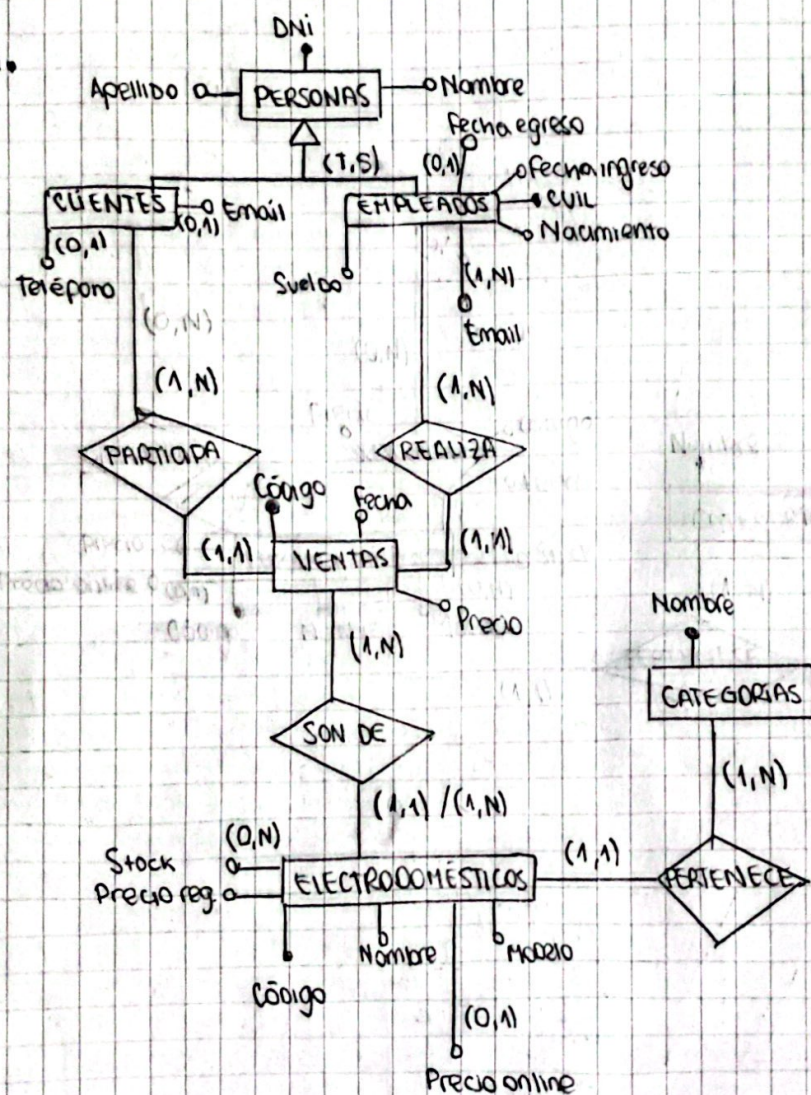 DNi
Apellido
PERSONAS
Nombre
(T,S)
Fecha egreso
(0,1)
Fecha ingreso
CLIENTES
Email
(0,1)
(0,1)
Teléfono
EMPLEADOS
CUIL
Nacimiento
Sueldo
(1,N)
Email
(0,N)
(1,N)
(1,N)
PARTICIPA
REALIZA
Código
Fecha
(1,1)
VENTAS
(1,1)
Precio
(1,N)
Nombre
CATEGORIAS
SON DE
(1,N)
(1,1) / (1,N)
(0,N)
Stock
Precio reg.
ELECTRODOMÉSTICOS
(1,1)
PERTENECE
Código
Nombre
Modelo
(0,1)
Precio online